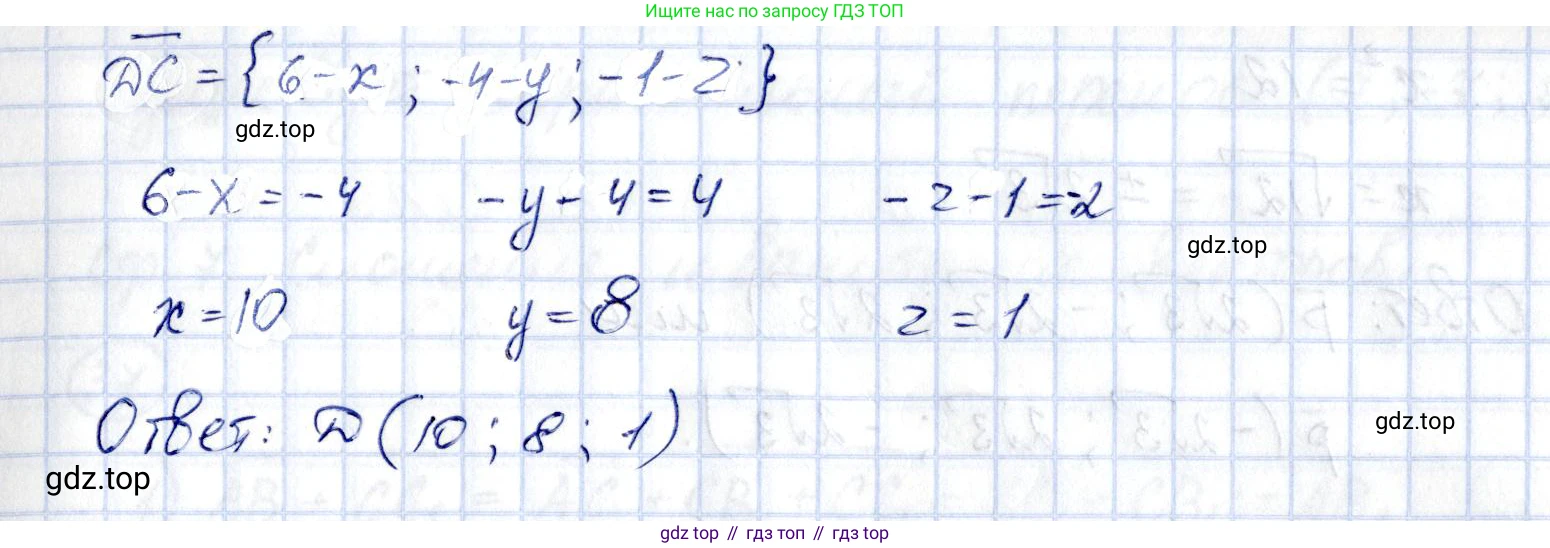 Ищите нас по запросу ГДЗ ТОП
DC = {6-x; -4-y; -1-z}
gdz.top
6-x = -4 -y-4=4 -z-1=-2
gdz.top
x=10 y=8 z=1
Ответ: D(10; 8; 1)
gdz.top
gdz.top
gdz.top // гдз топ // гдз top